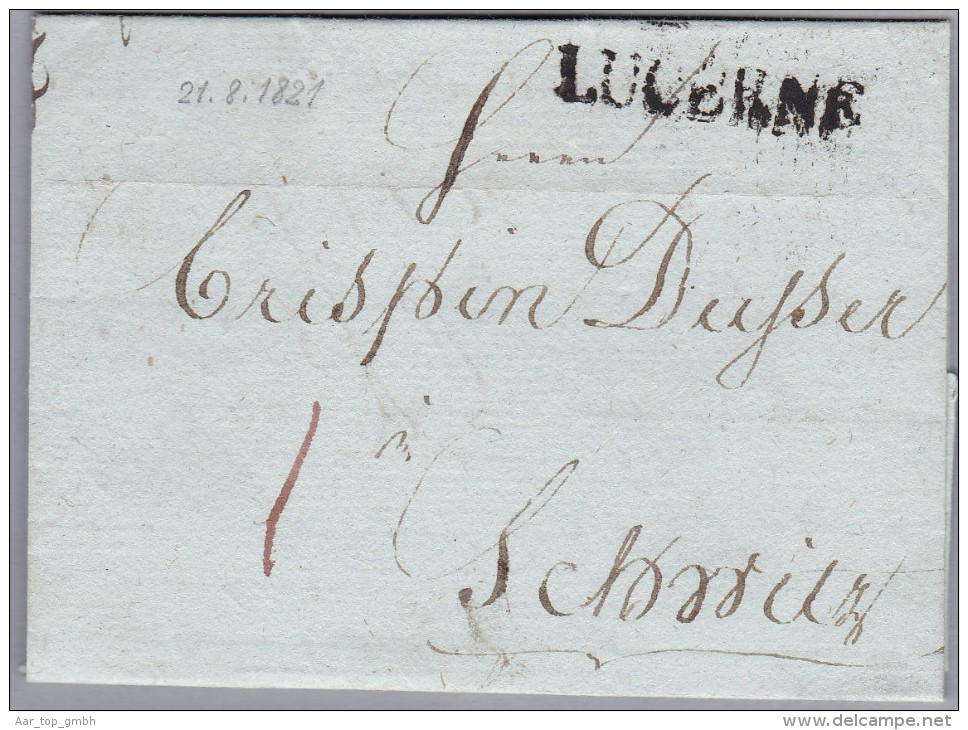 LUCERNE
21.8.1821
Herren
Crispin Duſser
1
in
Schwitz
Aar_top_gmbh
www.delcampe.net